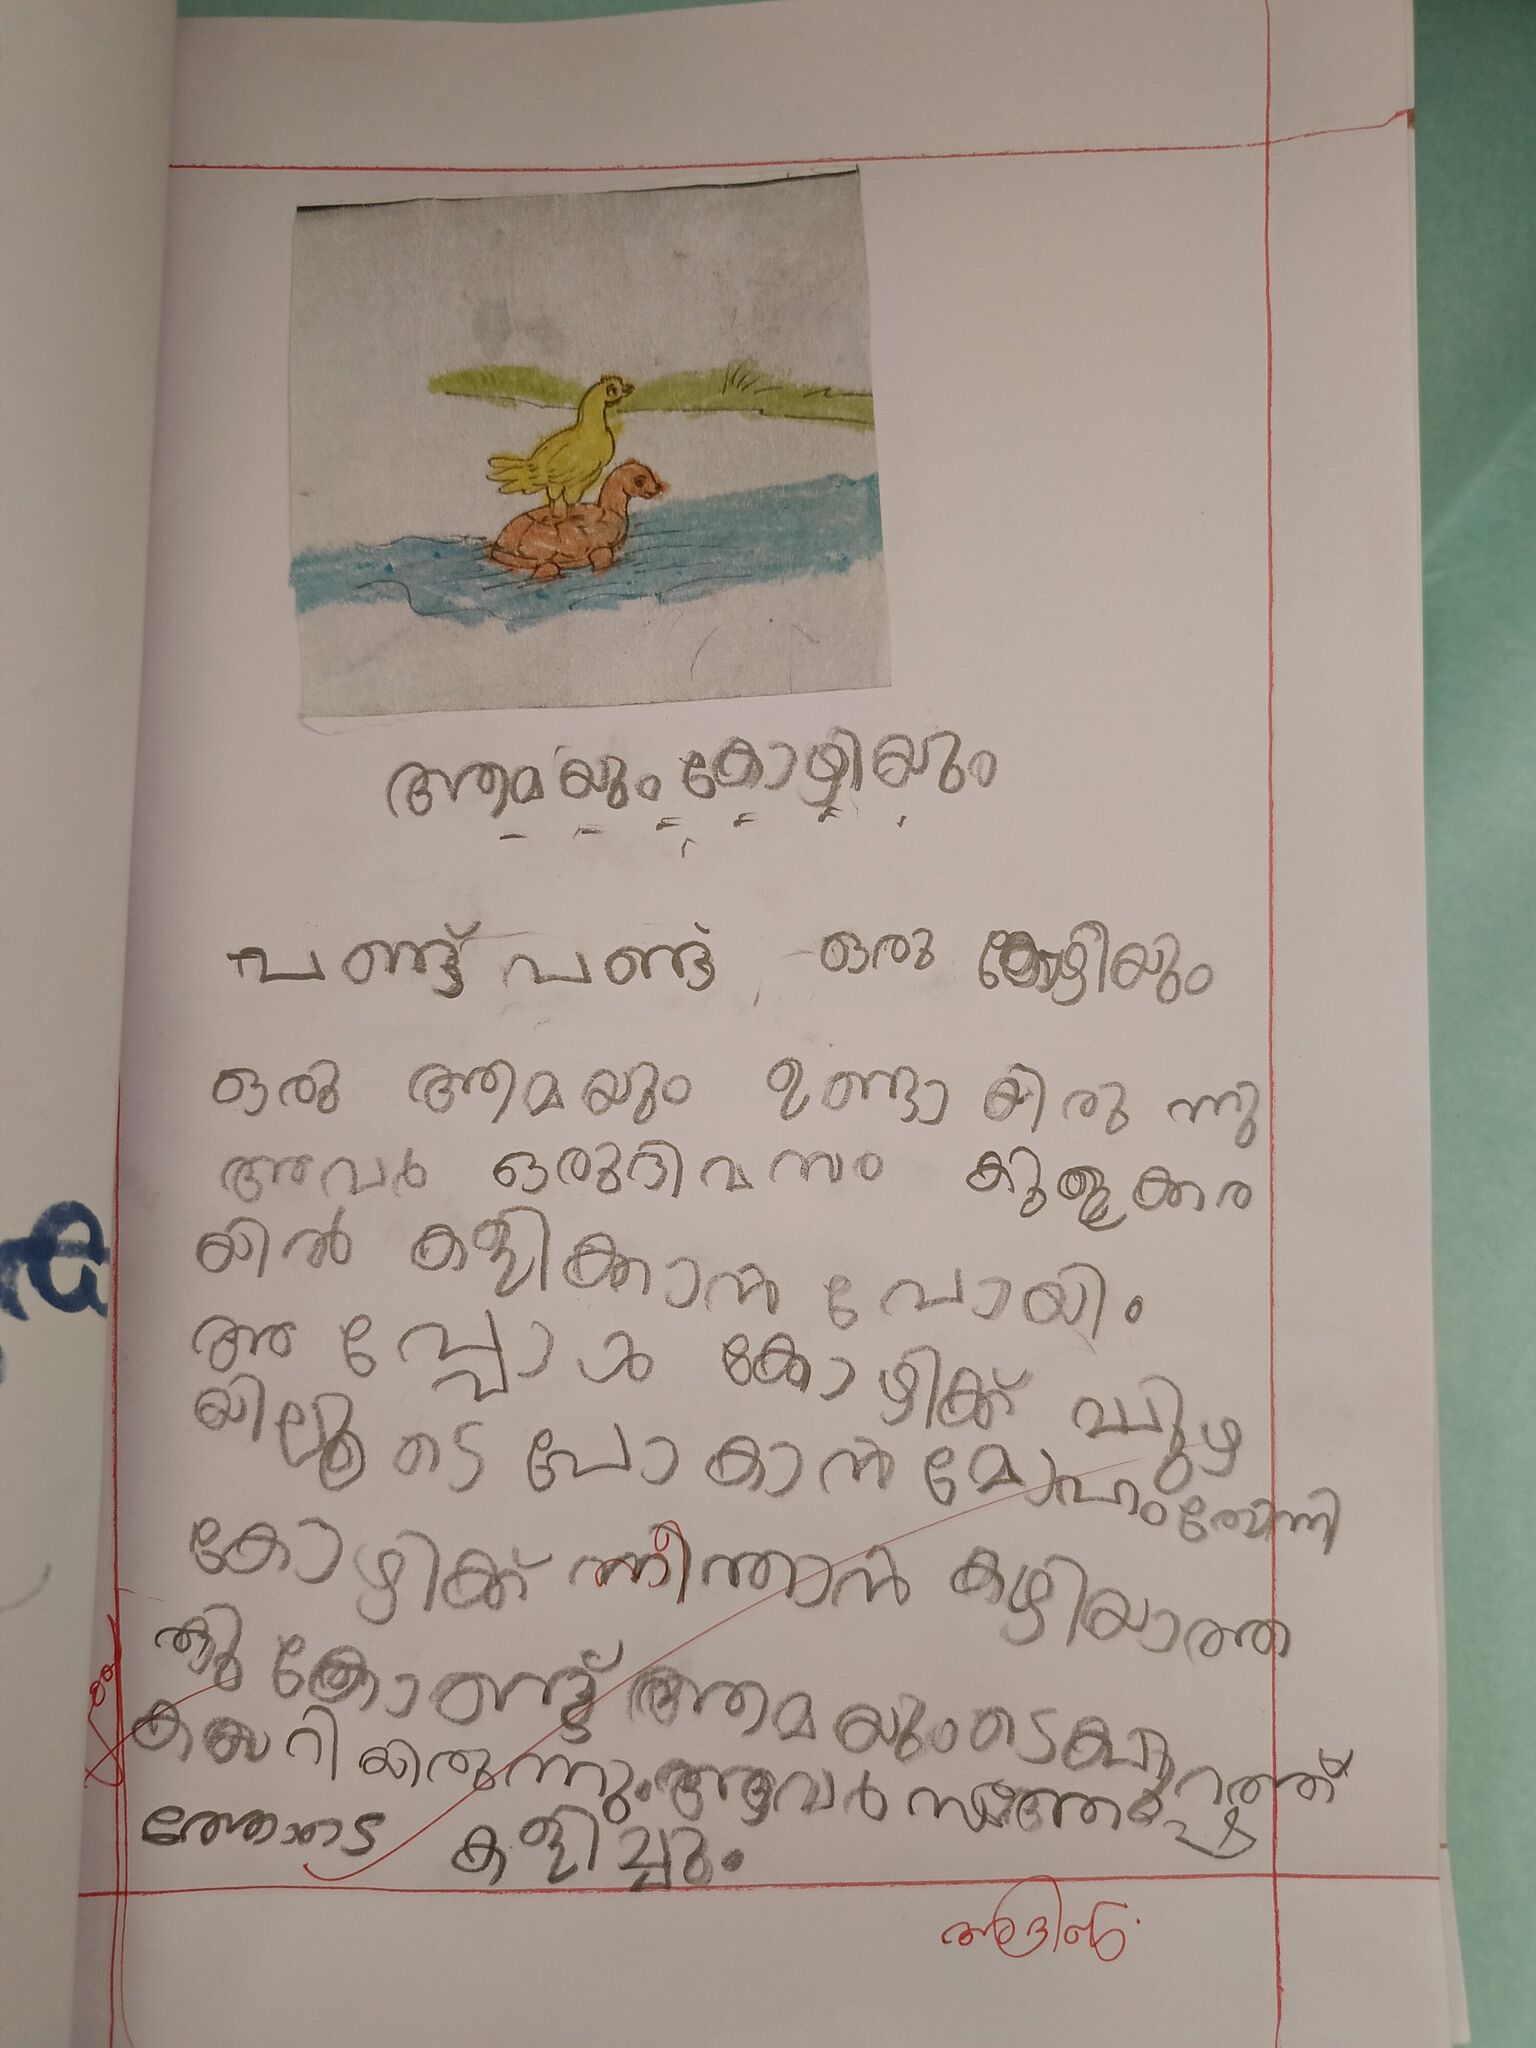 ആമയും കോഴിയും
പണ്ട് പണ്ട് ഒരു കോഴിയും
ഒരു ആമയും ഉണ്ടായിരുന്നു
അവർ ഒരുദിവസം കുളക്കര
യിൽ കളിക്കാൻ പോയി.
അപ്പോൾ കോഴിക്ക് പുഴ
യിലൂടെ പോകാൻ മോഹംതോന്നി
കോഴിക്ക് നീന്താൻ കഴിയാത്ത
തു കൊണ്ട് ആമയുംടെ പുറത്ത്
കയറിയിരുന്നു. അവർ സന്തോഷ
ത്തോടെ കളിച്ചു.